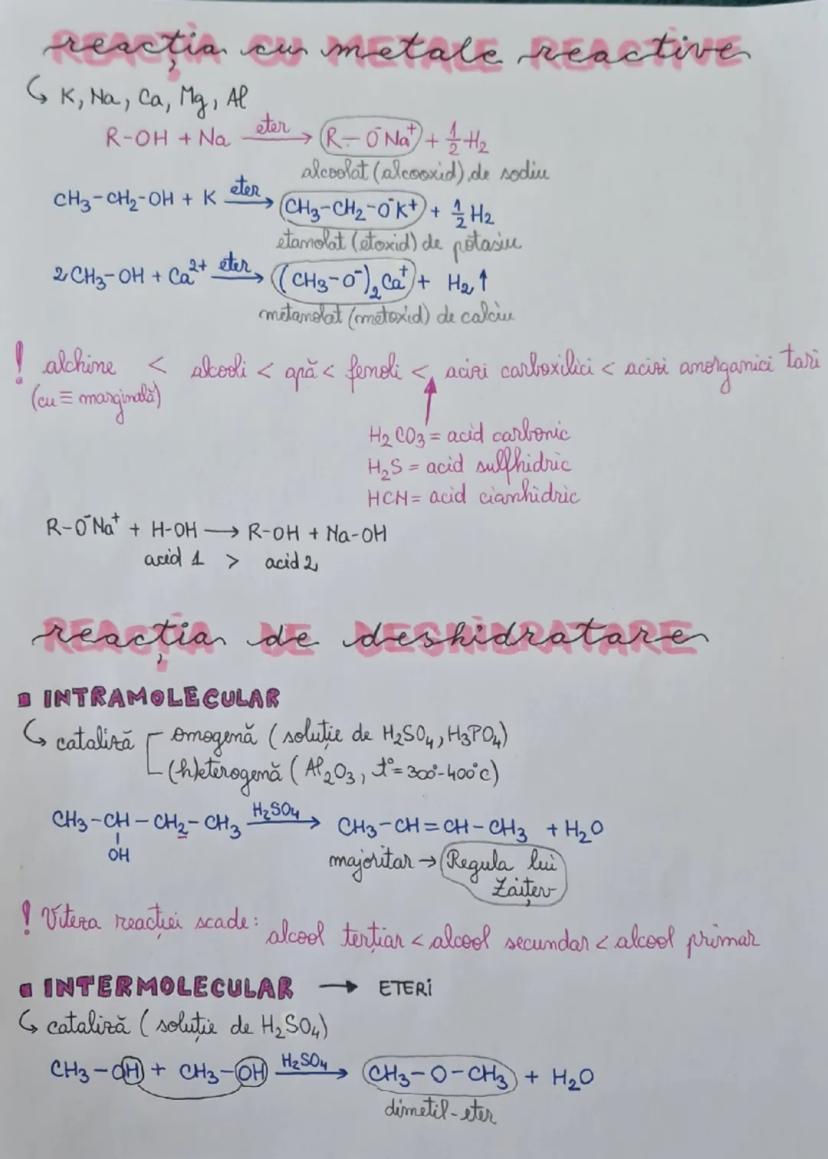 reacția cu metale reactive
↳ K, Na, Ca, Mg, Al
R-OH + Na —eter→ R-O⁻Na⁺ + 1/2 H₂
alcoolat (alcooxid) de sodiu
CH₃-CH₂-OH + K —eter→ CH₃-CH₂-O⁻K⁺ + 1/2 H₂
etanolat (etoxid) de potasiu
2CH₃-OH + Ca²⁺ —eter→ (CH₃-O⁻)₂Ca⁺ + H₂↑
metanolat (metoxid) de calciu
! alchine < alcooli < apă < fenoli < acizi carboxilici < acizi anorganici tari
(cu ≡ marginală)
H₂CO₃ = acid carbonic
H₂S = acid sulfhidric
HCN = acid cianhidric
R-O⁻Na⁺ + H-OH → R-OH + Na-OH
acid 1 > acid 2
reacția de deshidratare
INTRAMOLECULAR
↳ cataliză omogenă (soluție de H₂SO₄, H₃PO₄)
(h)eterogenă (Al₂O₃, t°= 300°-400°C)
CH₃-CH-CH₂-CH₃ —H₂SO₄→ CH₃-CH=CH-CH₃ + H₂O
OH
majoritar → Regula lui
Zaițev
! Viteza reacției scade: alcool terțiar < alcool secundar < alcool primar
INTERMOLECULAR → ETERI
↳ cataliză (soluție de H₂SO₄)
CH₃-OH + CH₃-OH —H₂SO₄→ CH₃-O-CH₃ + H₂O
dimetil-eter